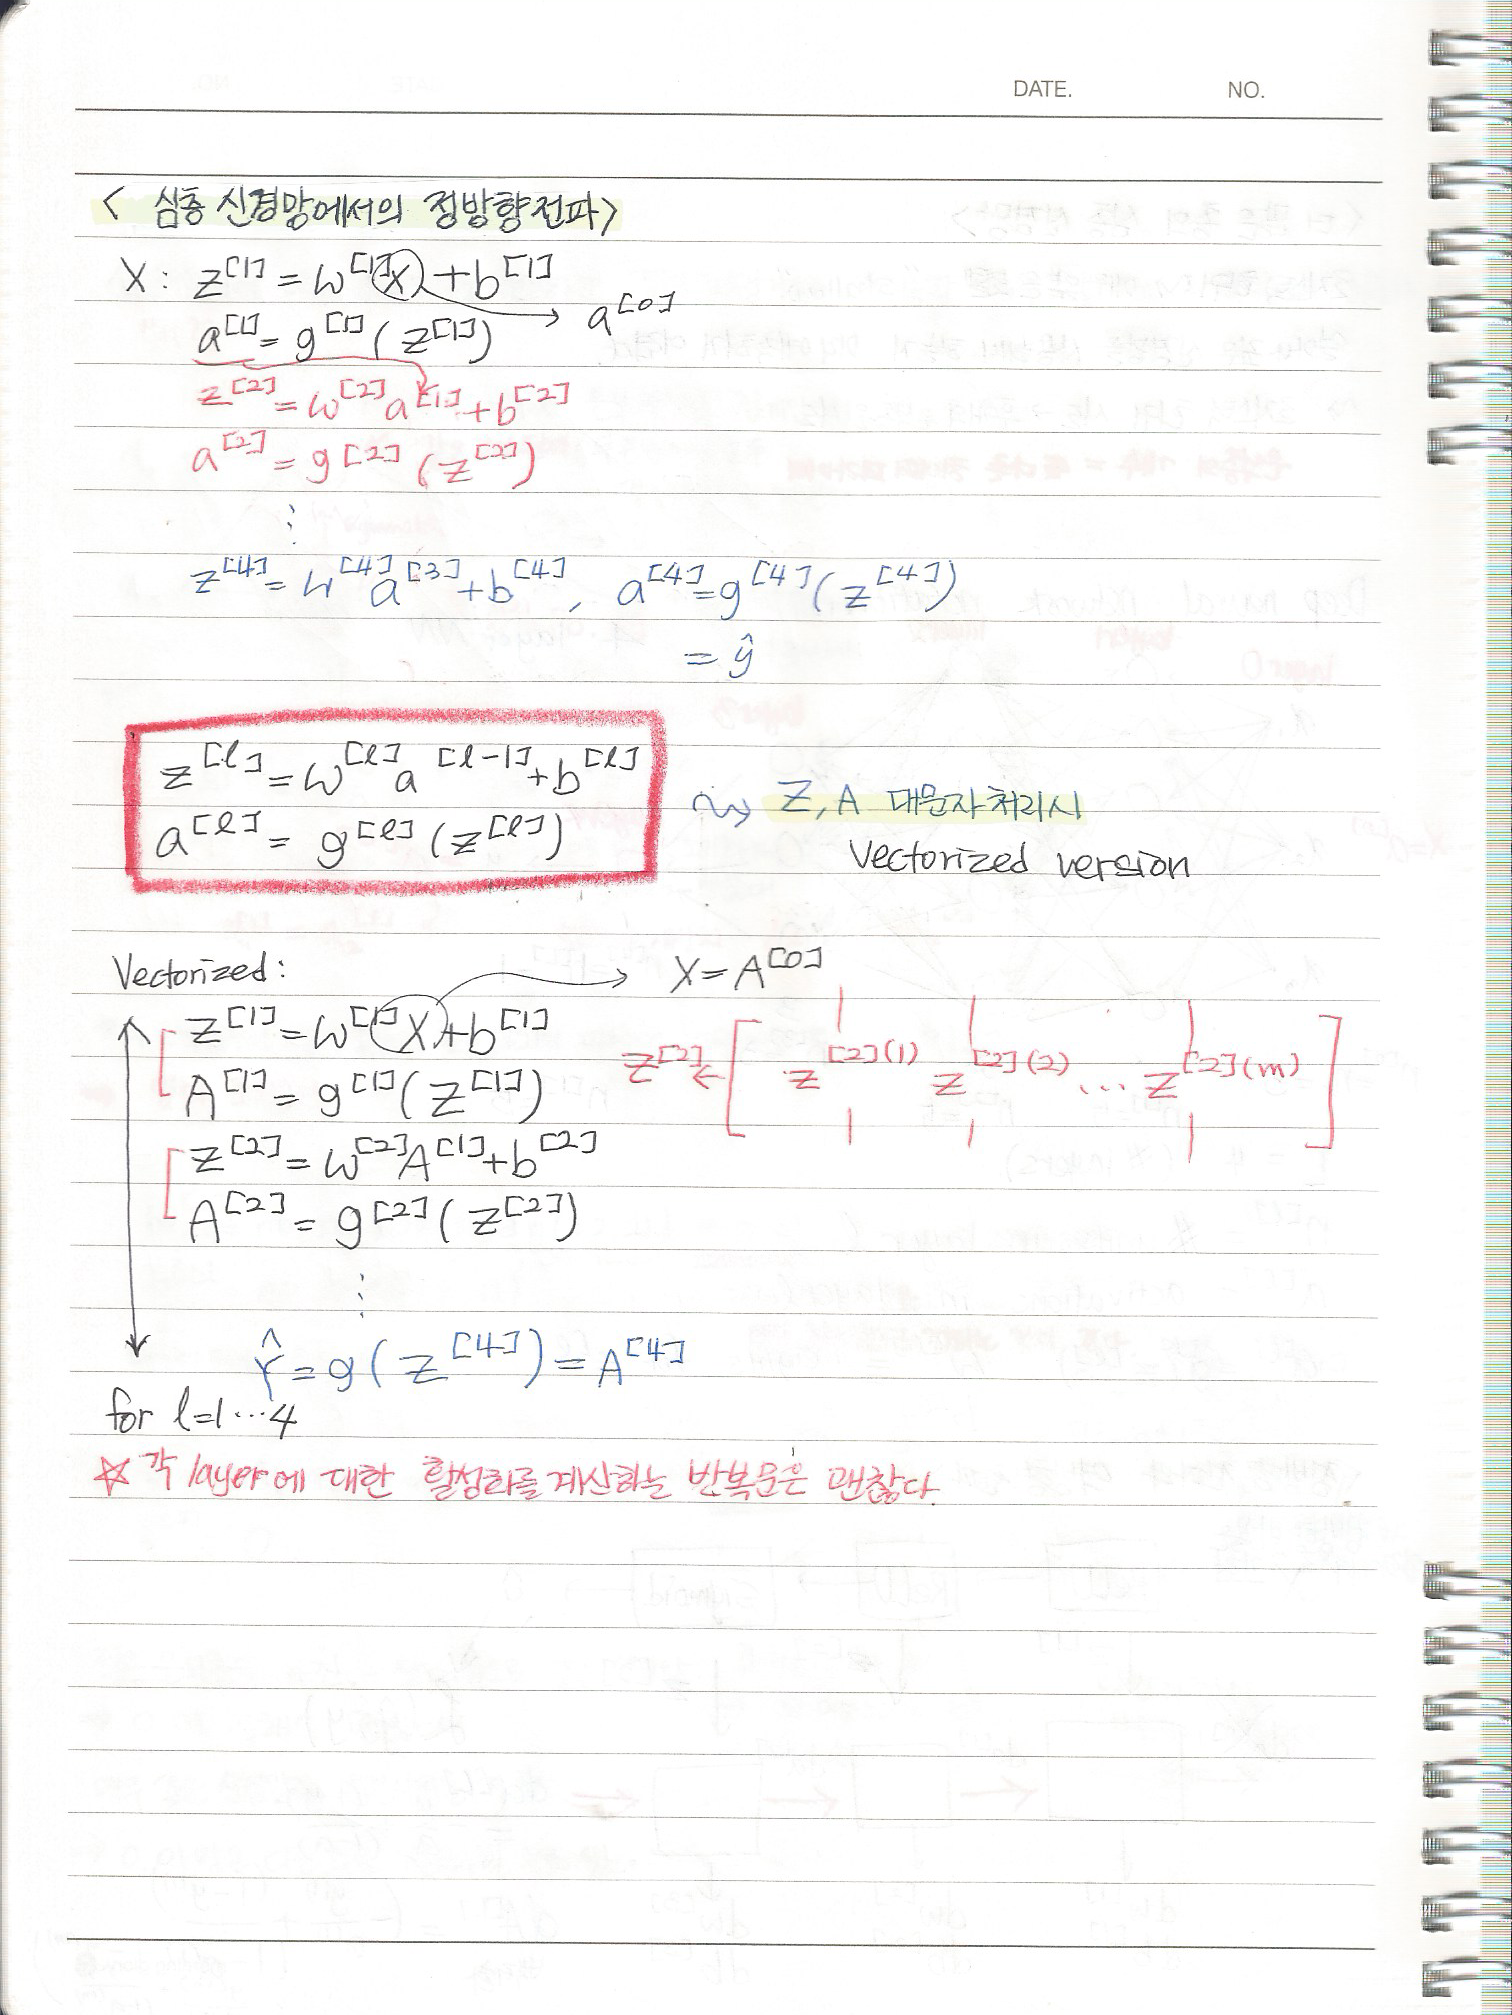 DATE. NO.
< 심층 신경망에서의 정방향전파>
X : z^[1] = w^[1]x + b^[1]
a^[0]
a^[1] = g^[1] (z^[1])
z^[2] = w^[2]a^[1] + b^[2]
a^[2] = g^[2] (z^[2])
⋮
z^[4] = w^[4]a^[3] + b^[4], a^[4] = g^[4](z^[4])
= ŷ
z^[l] = w^[l]a^[l-1] + b^[l]
a^[l] = g^[l] (z^[l])
Z, A 대문자처리시
Vectorized version
Vectorized :
X = A^[0]
Z^[1] = w^[1]X + b^[1]
A^[1] = g^[1](Z^[1])
Z^[2] ← [ z^[2](1) z^[2](2) ... z^[2](m) ]
Z^[2] = w^[2]A^[1] + b^[2]
A^[2] = g^[2](Z^[2])
⋮
Ŷ = g(Z^[4]) = A^[4]
for l=1...4
☆ 각 layer에 대한 활성화를 계산하는 반복문은 괜찮다.